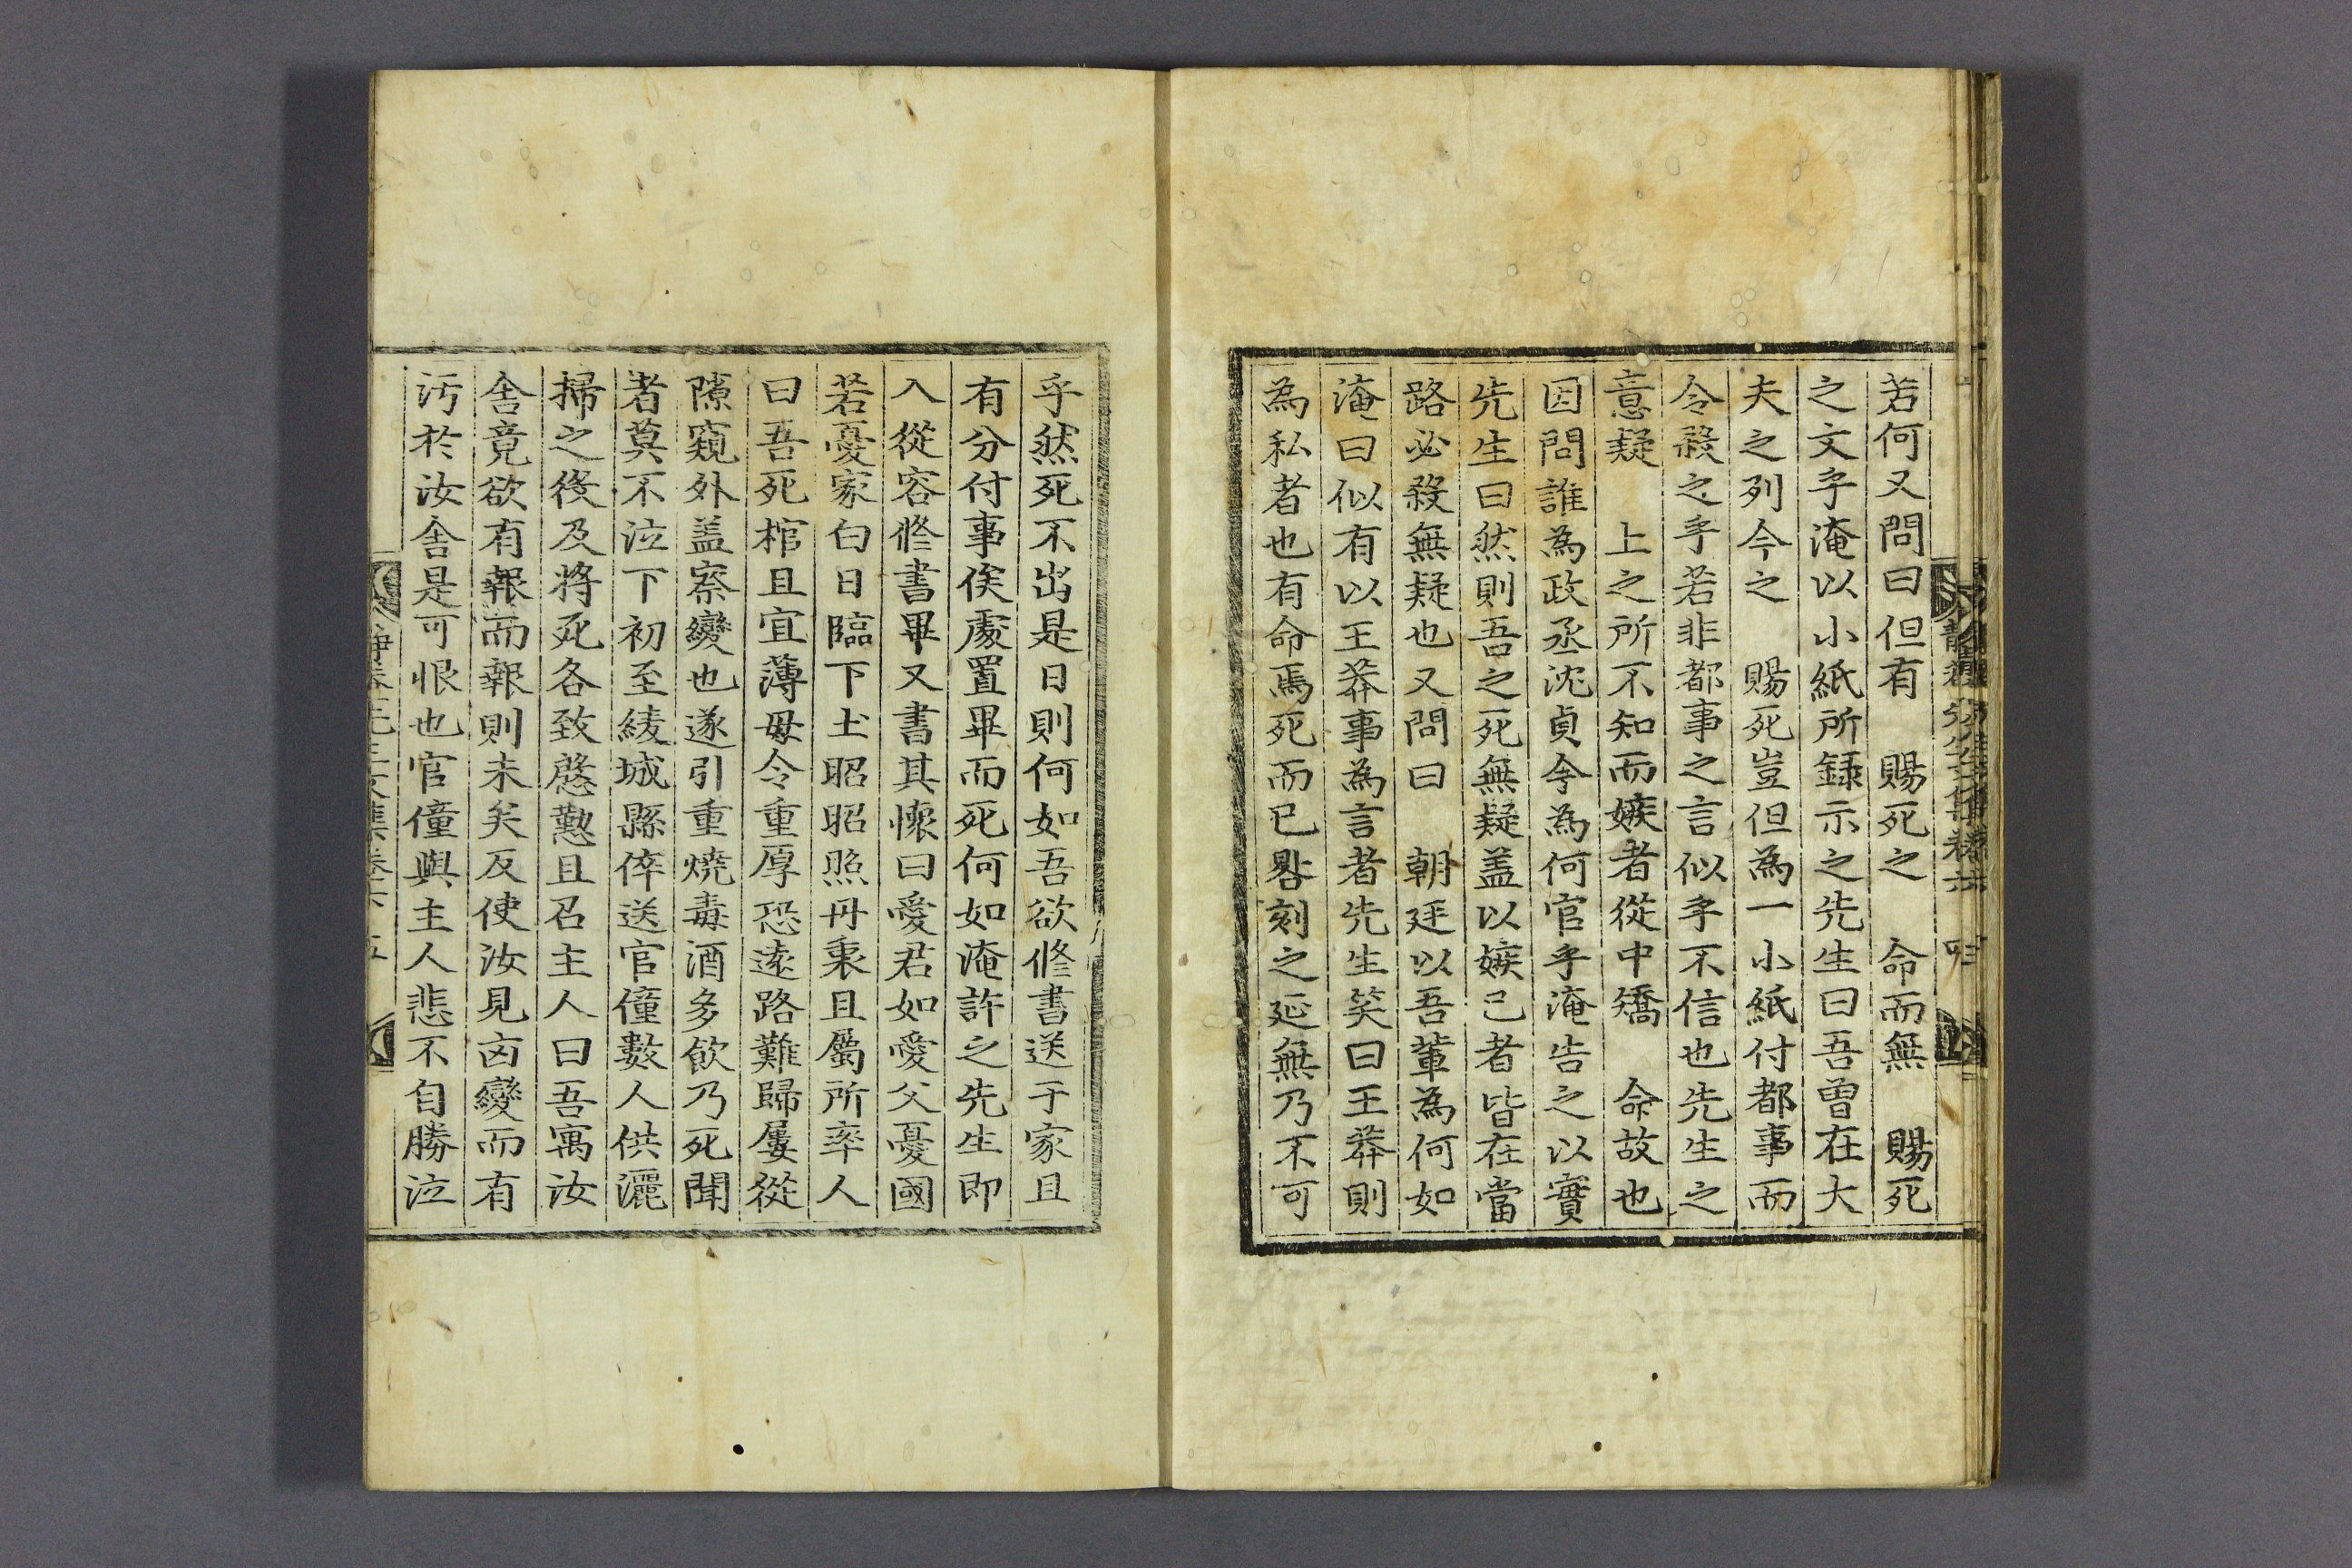 若何又問曰但有 賜死之 命而無 賜死
之文乎淹以小紙所録示之先生曰吾曾在大
夫之列今之 賜死豈但為一小紙付都事而
令殺之乎若非都事之言似乎不信也先生之
意疑 上之所不知而嫉者從中矯 命故也
因問誰為政丞沈貞今為何官乎淹告之以實
先生曰然則吾之死無疑盖以嫉己者皆在當
路必殺無疑也又問曰 朝廷以吾輩為何如
淹曰似有以王莽事為言者先生笑曰王莽則
為私者也有命焉死而已晷刻之延無乃不可
乎然死不出是日則何如吾欲修書送于家且
有分付事俟處置畢而死何如淹許之先生即
入從容修書畢又書其懷曰愛君如愛父憂國
若憂家白日臨下土昭昭照丹衷且屬所率人
曰吾死棺且宜薄毋令重厚恐遠路難歸屢從
隙窺外盖察變也遂引重燒毒酒多飮乃死聞
者莫不泣下初至綾城縣倅送官僮數人供灑
掃之役及將死各致慇懃且召主人曰吾寓汝
舍竟欲有報而報則未矣反使汝見凶變而有
汚於汝舍是可恨也官僮與主人悲不自勝泣